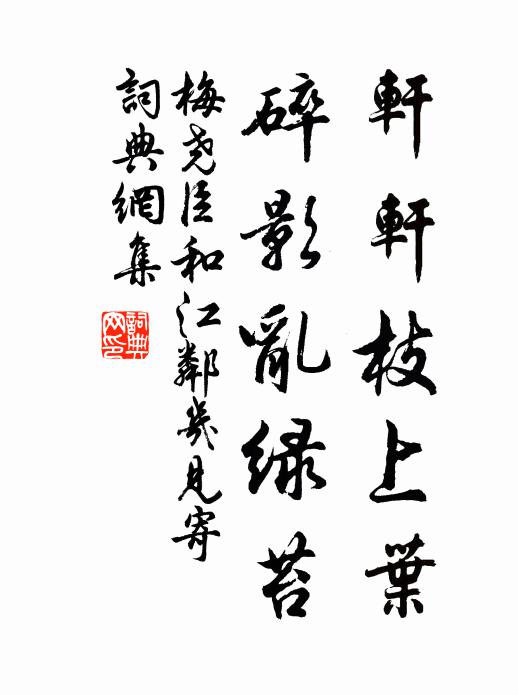 軒軒枝上葉
碎影亂緑苔
梅堯臣和江鄰幾見寄
詞典網集
詞典網印